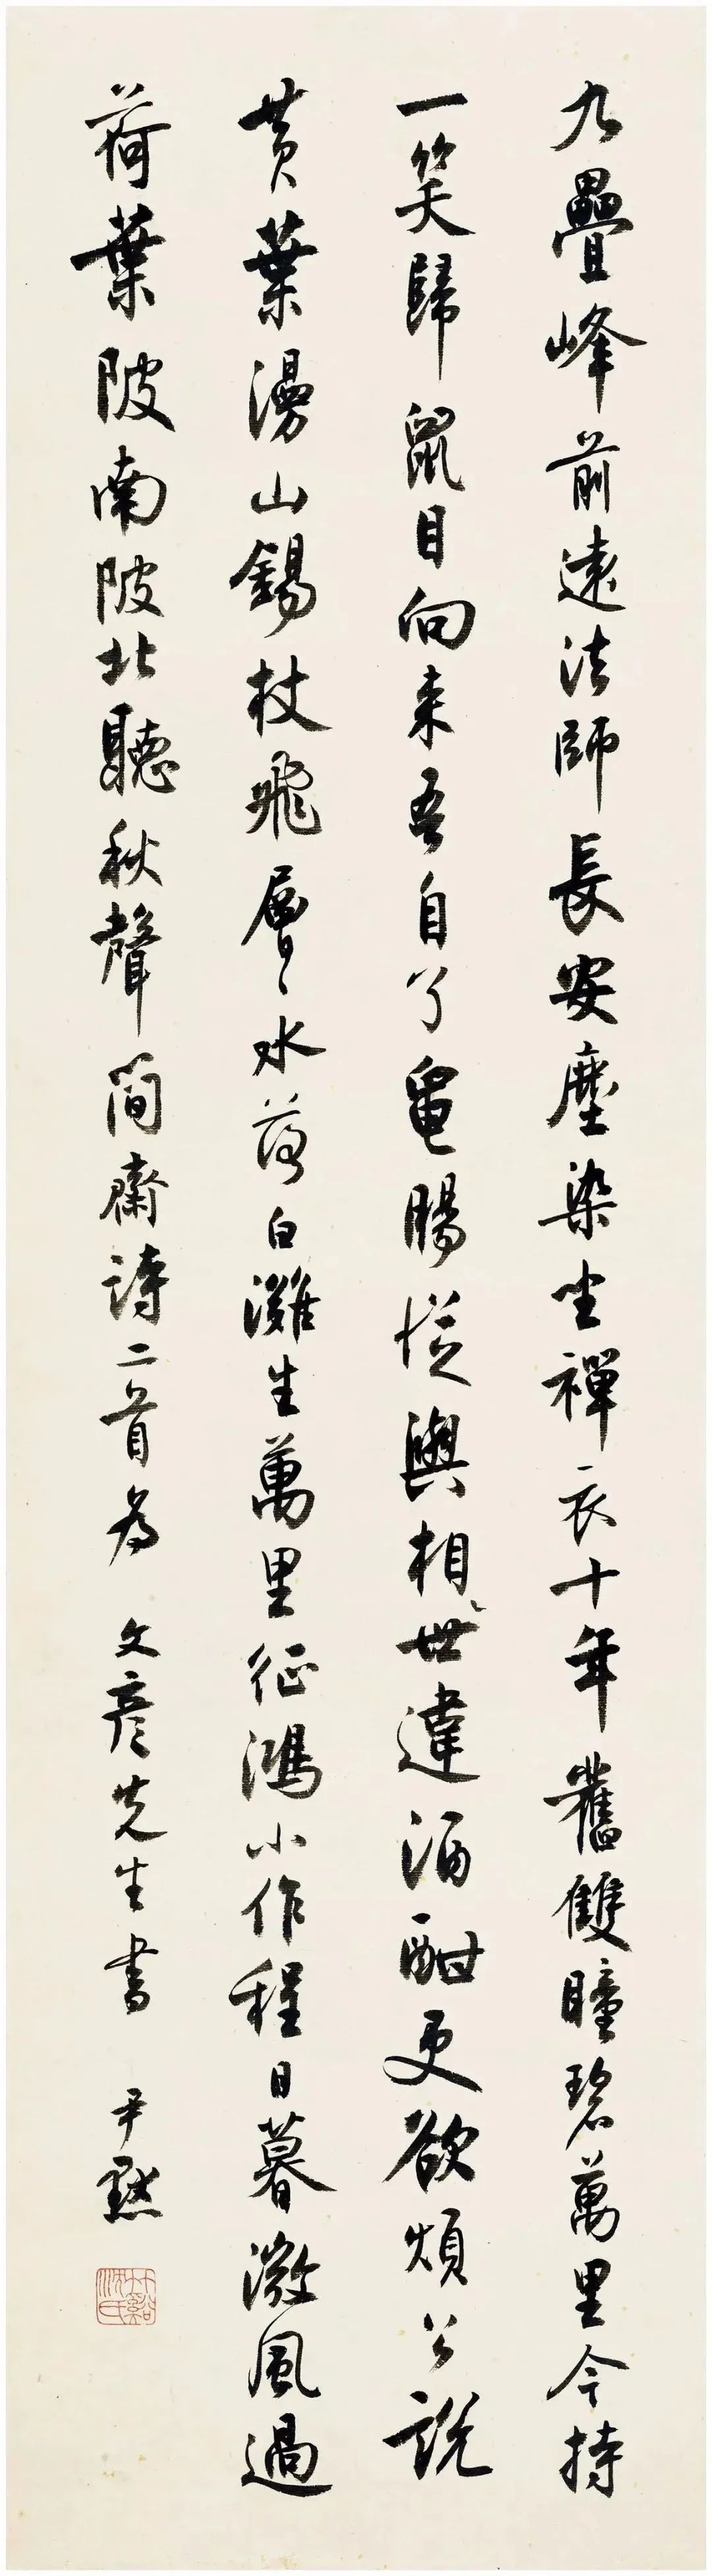 九疊峰前遠法師長安塵染坐禪衣十年舊雙瞳碧萬里今持
一笑歸鼠目向来吾自了龜腸從與相世違酒酣更欲煩公說
黄葉漫山錫杖飛層〻水落白灘生萬里征鴻小作程日暮微風過
荷葉陂南陂北聽秋聲簡齋詩二首為 文彥先生書 尹默
竹谿沈氏